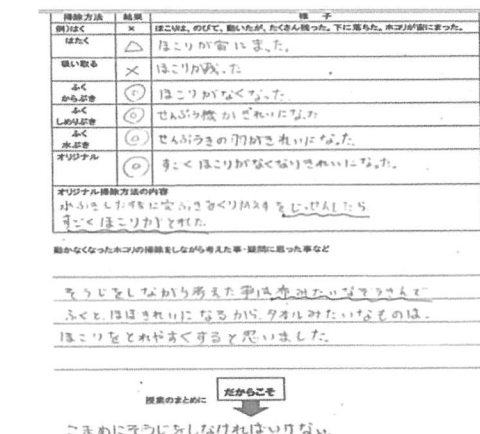 掃除方法 結果 様子
例)はく × ほこりは、のびて、動いたが、たくさん残った。下に落ちた。ホコリが宙にまった。
はたく △ ほこりが宙にまった。
吸い取る × ほこりが残った
ふく からぶき ◎ ほこりがなくなった
ふく しめりぶき ◎ せんぷう機がきれいになった
ふく 水ぶき ◎ せんぷうきの羽がきれいになった。
オリジナル ◎ すごくほこりがなくなりきれいになった。
オリジナル掃除方法の内容
水ぶきした後に空ぶきをくりかえすをじっせんしたら
すごくほこりがとれた
動かなくなったホコリの掃除をしながら考えた事・疑問に思った事など
そうじをしながら考えた事は布みたいなぞうきんで
ふくと、ほぼきれいになるから、タオルみたいなものは、
ほこりをとれやすくすると思いました。
授業のまとめに だからこそ
こまめにそうじをしなければいけない